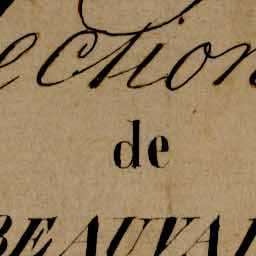 ection
de
BEAUVAI